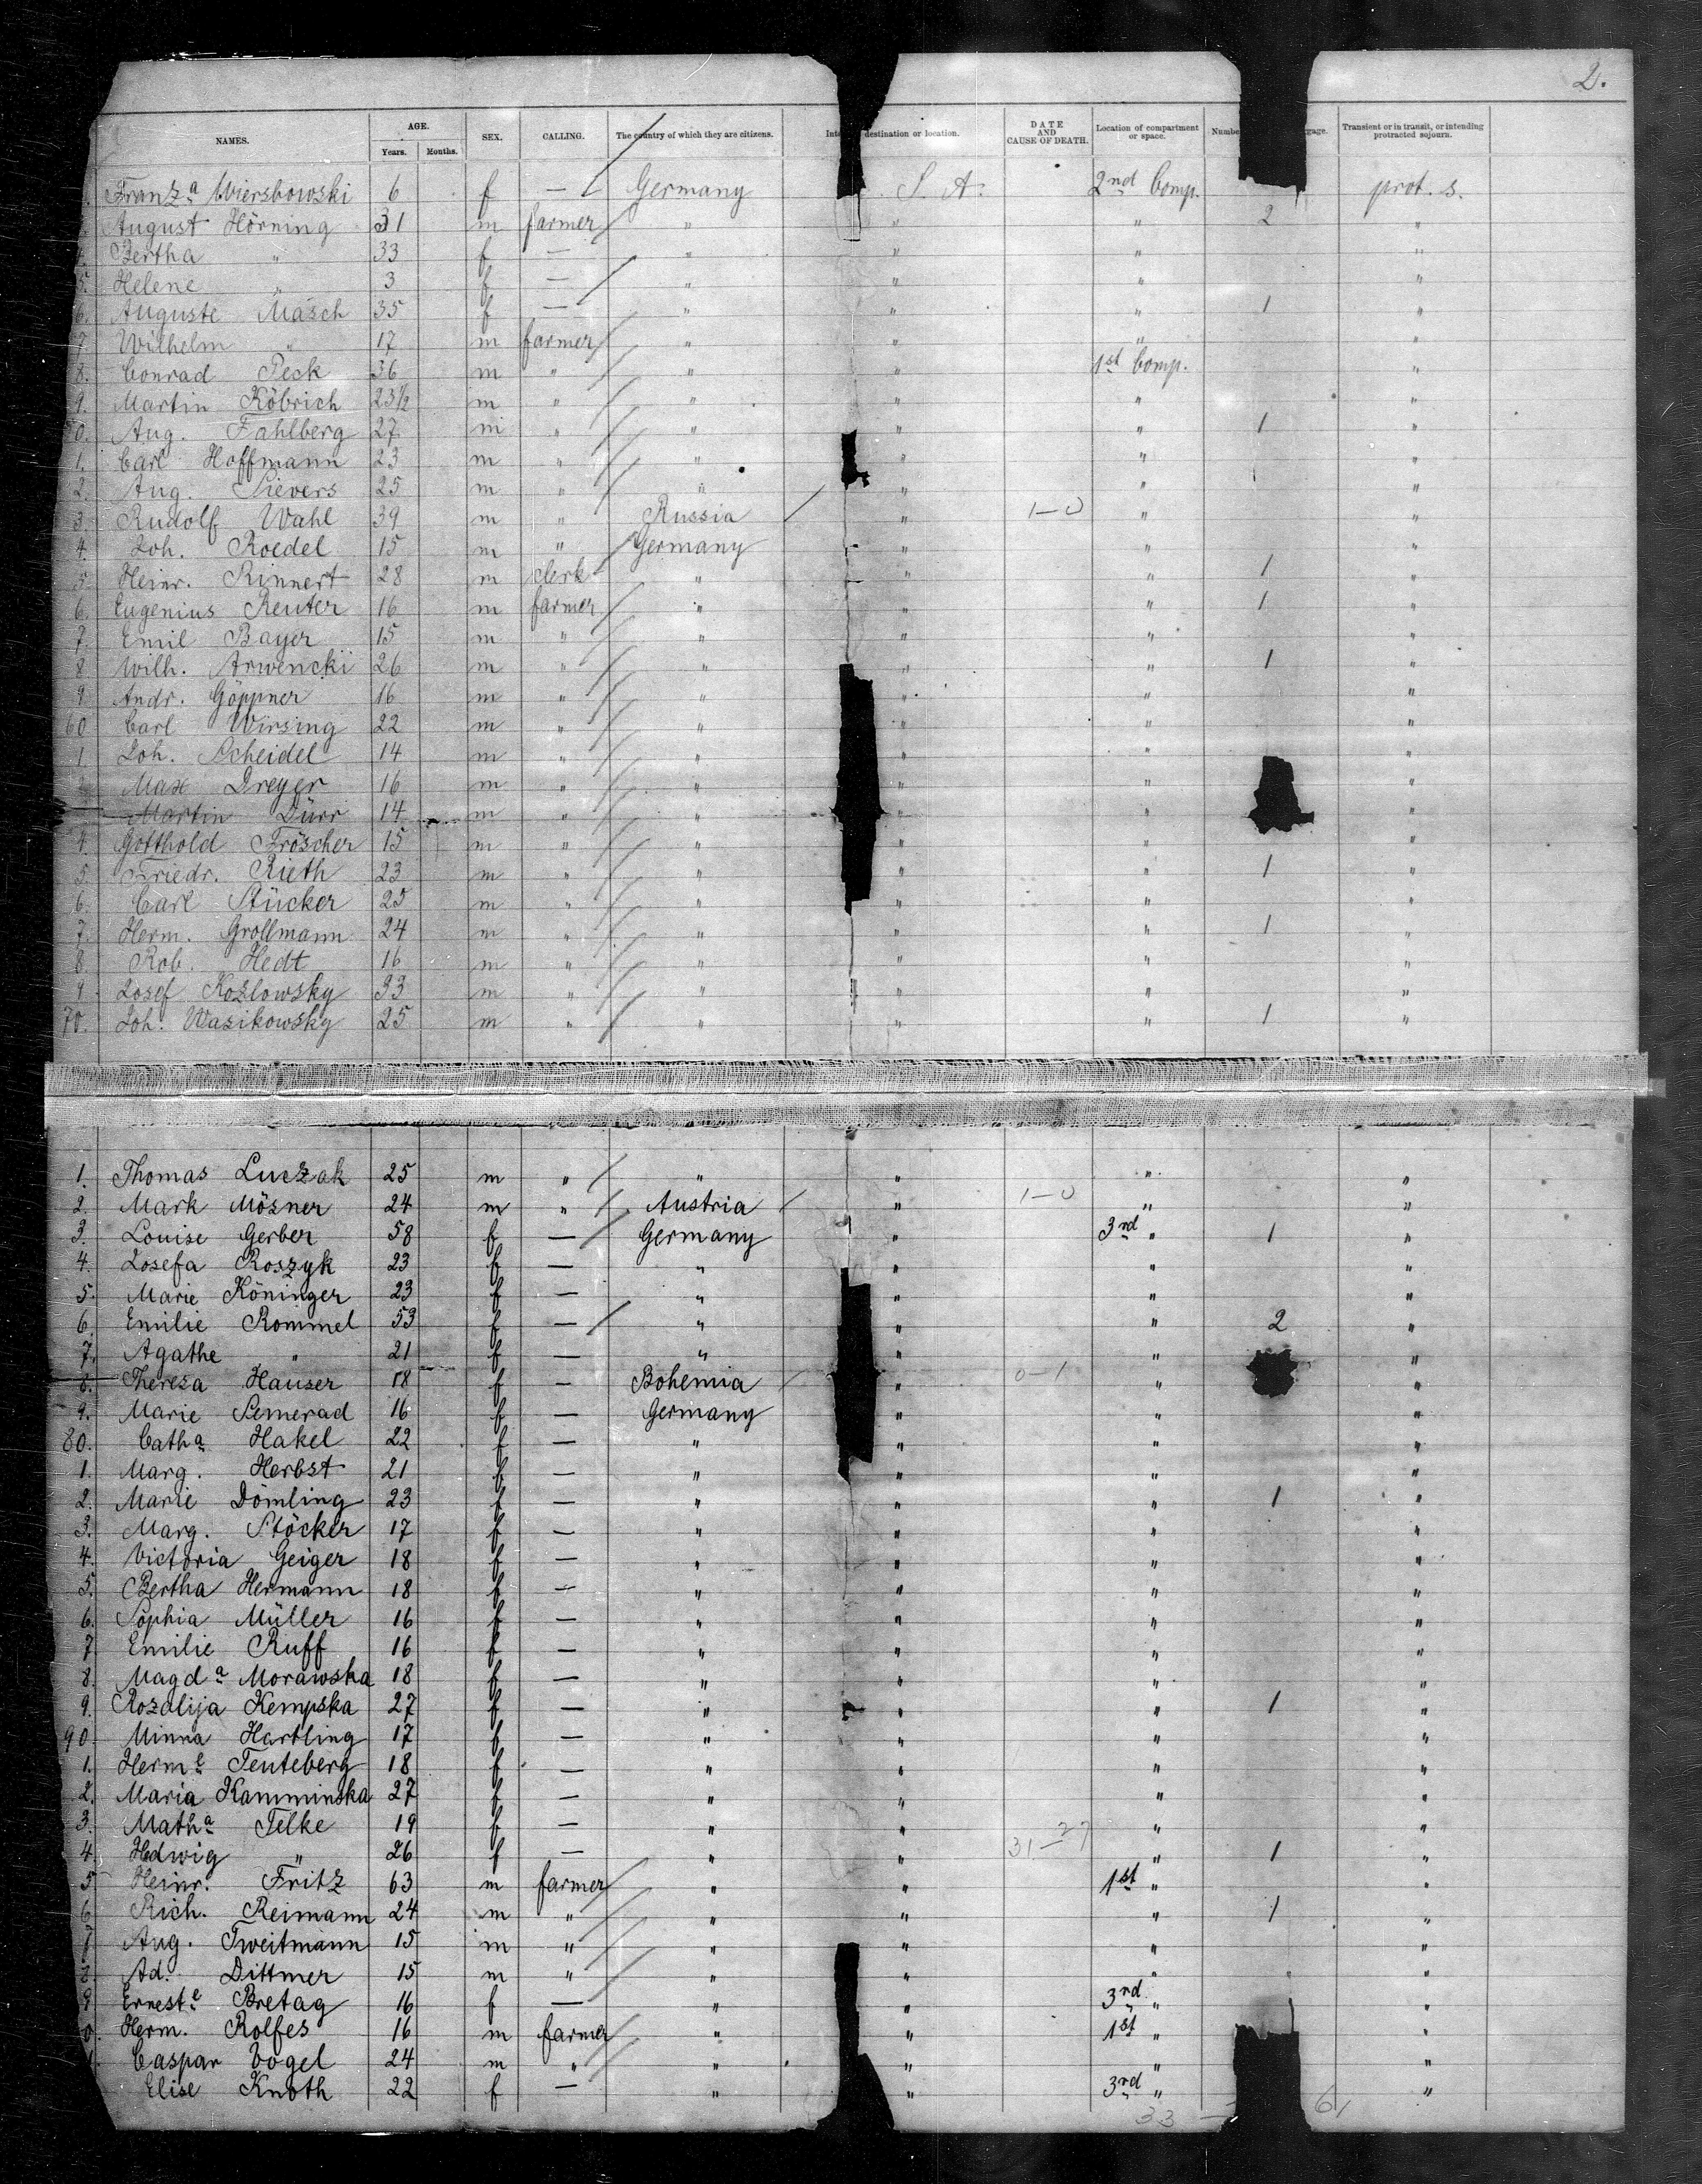 2.
NAMES. AGE. Years. Months. SEX. CALLING. The country of which they are citizens. destination or location. DATE AND CAUSE OF DEATH. Location of compartment or space. Transient or in transit, or intending protracted sojourn.
Franzª Wiersbowski 6 f — Germany S. A. 2nd Comp. prot. s.
August Hörning 31 m farmer " " " 2 "
4. Bertha " 33 f — " " " "
5. Helene " 3 f — " " " "
6. Auguste Masch 35 f — " " " 1 "
7 Wilhelm " 17 m farmer " " " "
8. Conrad Peck 36 m " " " 1st Comp. "
9. Martin Köbrich 23½ m " " " " "
50. Aug. Fahlberg 27 m " " " " 1 "
1. Carl Hoffmann 23 m " " " " "
2. Aug. Sievers 25 m " " " " "
3. Rudolf Wahl 39 m " Russia " 1—0 " "
4. Joh. Roedel 15 m " Germany " " "
5. Heinr. Rinnert 28 m clerk " " " 1 "
6. Eugenius Reuter 16 m farmer " " " 1 "
7. Emil Bayer 15 m " " " " "
8 Wilh. Arwencki 26 m " " " " 1 "
9 Andr. Göppner 16 m " " " " "
60 Carl Wirsing 22 m " " " " "
1. Joh. Scheidel 14 m " " " " "
2 Max Dreyer 16 m " " " " "
Martin Dürr 14 m " " " "
4. Gotthold Fröscher 15 m " " " " "
5 Friedr. Rieth 23 m " " " " 1 "
6. Carl Stücker 25 m " " " " "
7. Herm. Grollmann 24 m " " " " 1 "
8. Rob. Hedt 16 m " " " " "
9 Josef Kozlowsky 33 m " " " " "
70. Joh. Wasikowsky 25 m " " " " 1 "
1. Thomas Luczak 25 m " " " " "
2. Mark Mösner 24 m " Austria " 1—0 " "
3. Louise Gerber 58 f — Germany " 3rd " 1 "
4. Josefa Roszyk 23 f — " " " "
5. Marie Köninger 23 f — " " " "
6. Emilie Rommel 53 f — " " " 2 "
7. Agathe " 21 f — " " " "
8. Theresa Hauser 18 f — Bohemia " 0—1 " "
9. Marie Semerad 16 f — Germany " " "
80. Cathª Hakel 22 f — " " " "
1. Marg. Herbst 21 f — " " " "
2. Marie Dömling 23 f — " " " 1 "
3. Marg. Stöcker 17 f — " " " "
4. Victoria Geiger 18 f — " " " "
5. Bertha Hermann 18 f — " " " "
6. Sophia Müller 16 f — " " " "
7 Emilie Ruff 16 f — " " " "
8. Magdª Morawska 18 f — " " " "
9. Rozalija Kempska 27 f — " " " 1 "
90 Minna Hartling 17 f — " " " "
1. Herme Teuteberg 18 f — " " " "
2. Maria Kamminska 27 f — " " " "
3. Mathª Telke 19 f — " " " "
4. Hedwig " 26 f — " " 31—27 " 1 "
5 Heinr. Fritz 63 m farmer " " 1st " "
6 Rich. Reimann 24 m " " " " 1 "
7 Aug. Tweitmann 15 m " " " " "
8. Ad. Dittmer 15 m " " " " "
9 Erneste Bretag 16 f — " " 3rd " "
0. Herm. Rolfes 16 m farmer " " 1st " "
Caspar Vogel 24 m " " " " "
Elise Knoth 22 f — " " 3rd " "
33 61